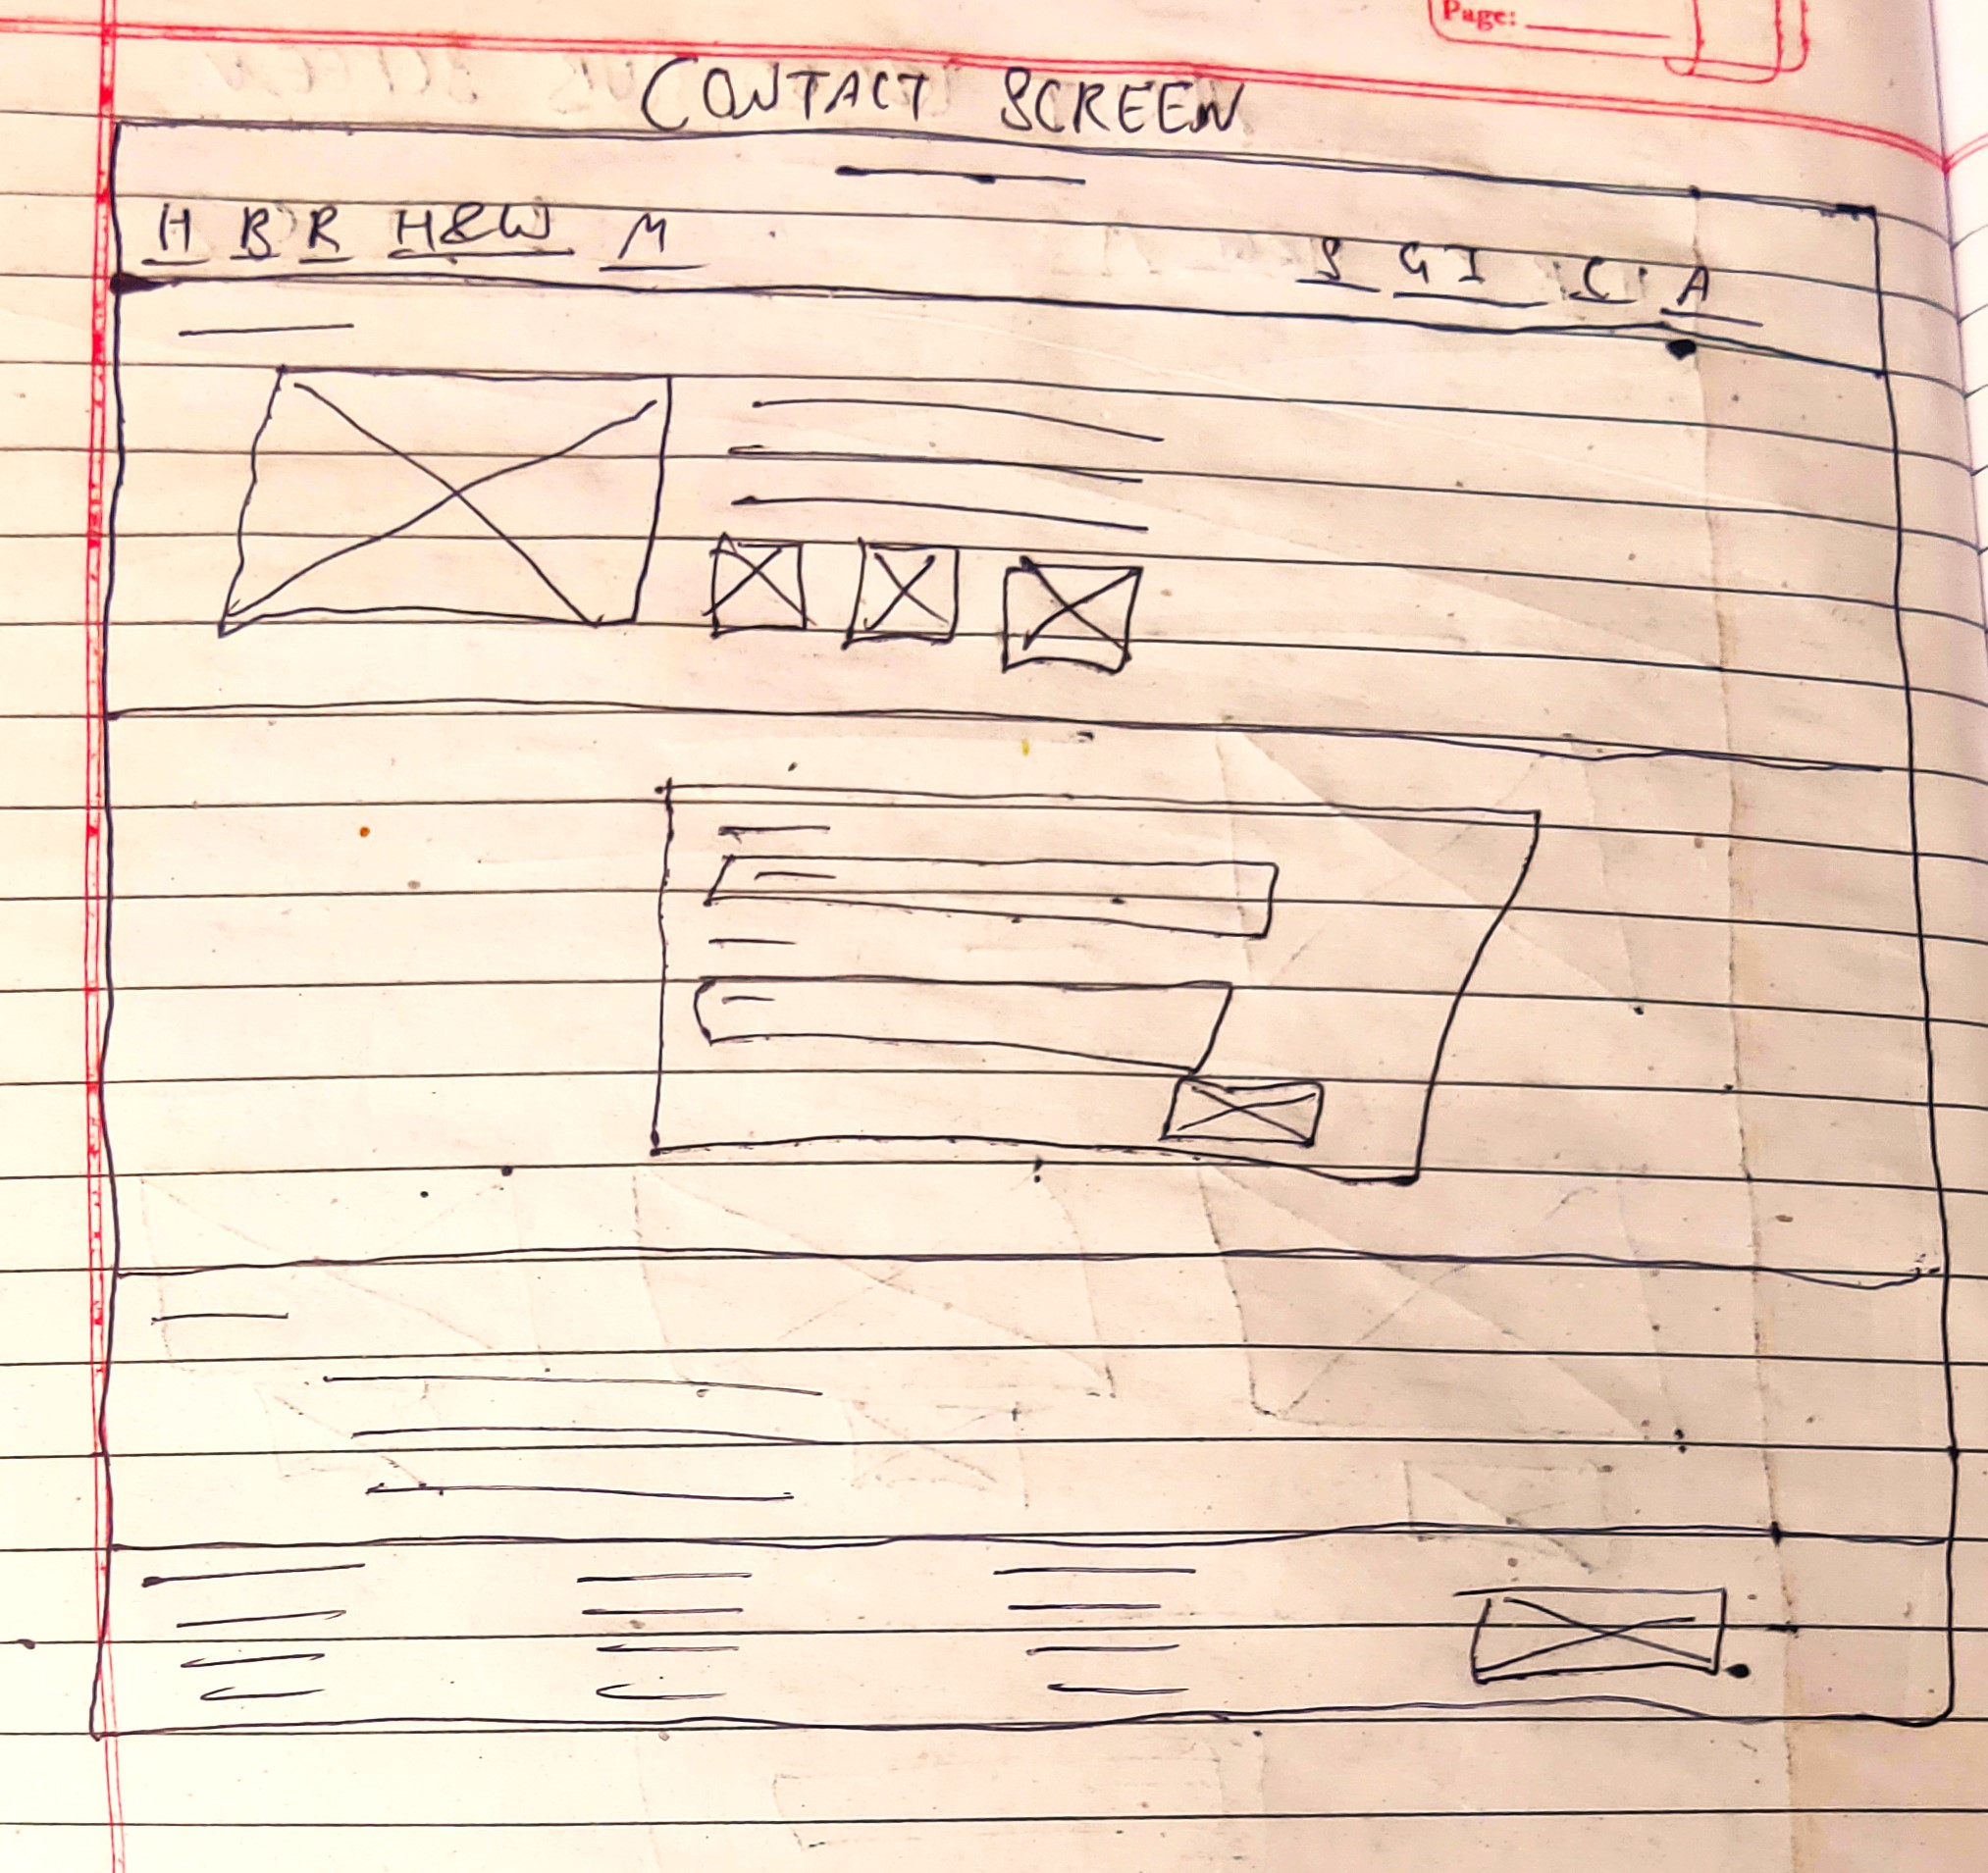 Page:
CONTACT SCREEN
H B R H&W M S GI C A